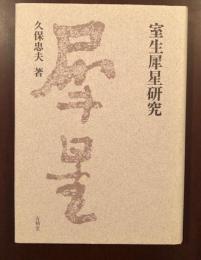 室生犀星研究
久保忠夫 著
犀星
有精堂